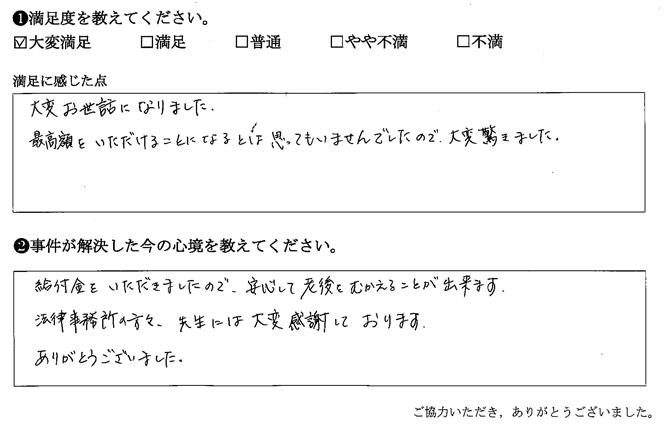 ❶満足度を教えてください。
☑大変満足 □満足 □普通 □やや不満 □不満
満足に感じた点
大変お世話になりました.
最高額をいただけることになるとは思ってもいませんでしたので、大変驚きました。
❷事件が解決した今の心境を教えてください。
給付金をいただきましたので、安心して老後をむかえることが出来ます.
法律事務所の方々、先生には大変感謝しております.
ありがとうございました。
ご協力いただき，ありがとうございました。